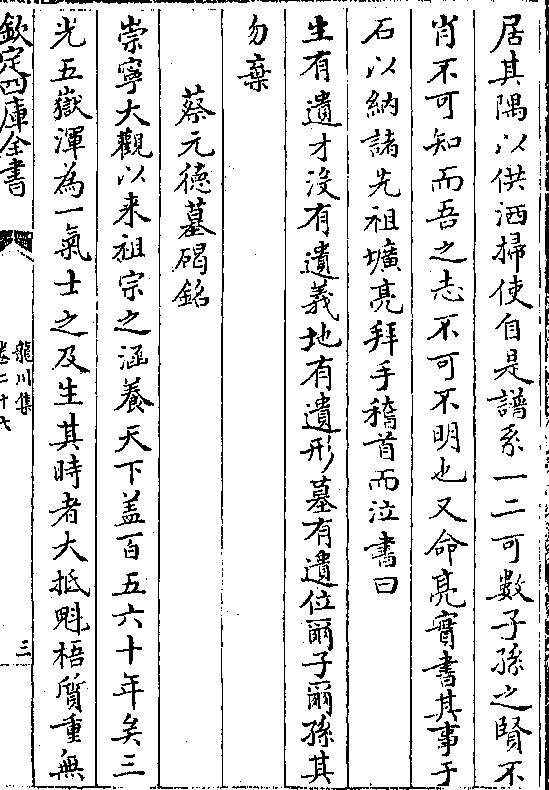 居其隅以供洒掃使自是譜系一二可數子孫之賢不
肖不可知而吾之志不可不明也又命亮實書其事于
石以納諸先祖壙亮拜手稽首而泣書曰
生有遺才沒有遺義地有遺形墓有遺位爾子爾孫其
勿棄
蔡元德墓碣銘
崇寧大觀以来祖宗之涵養天下盖百五六十年矣三
光五嶽渾為一氣士之及生其時者大抵魁梧質重無
欽定四庫全書
龍川集
卷二十八
三